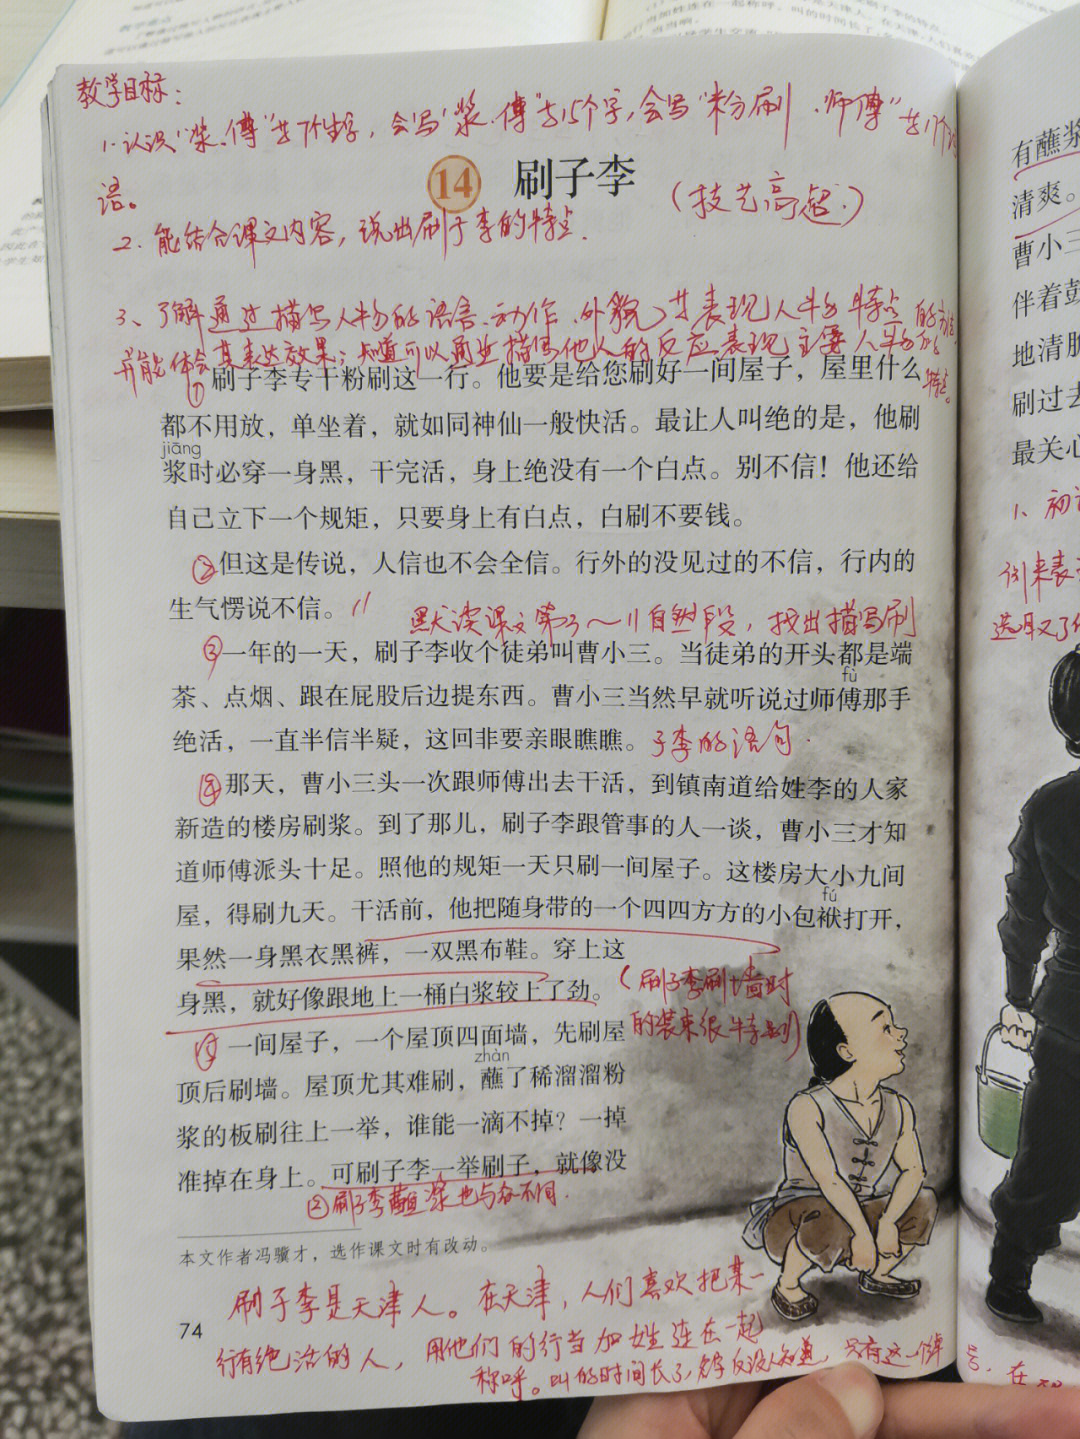 教学目标：
1.认识“浆、傅”等7个生字，会写“浆、傅”等15个字，会写“粉刷、师傅”等17个词
语。
14 刷子李
（技艺高超）
2.能结合课文内容，说出刷子李的特点.
3、了解通过描写人物的语言、动作、外貌等表现人物特点的方法，
并能体会其表达效果；知道可以通过描写他人的反应表现主要人物的
特点。
①刷子李专干粉刷这一行。他要是给您刷好一间屋子，屋里什么
都不用放，单坐着，就如同神仙一般快活。最让人叫绝的是，他刷
jiāng
浆时必穿一身黑，干完活，身上绝没有一个白点。别不信！他还给
自己立下一个规矩，只要身上有白点，白刷不要钱。
②但这是传说，人信也不会全信。行外的没见过的不信，行内的
生气愣说不信。//
默读课文第3～11自然段，找出描写刷
③一年的一天，刷子李收个徒弟叫曹小三。当徒弟的开头都是端
fù
茶、点烟、跟在屁股后边提东西。曹小三当然早就听说过师傅那手
绝活，一直半信半疑，这回非要亲眼瞧瞧。
子李的语句.
④那天，曹小三头一次跟师傅出去干活，到镇南道给姓李的人家
新造的楼房刷浆。到了那儿，刷子李跟管事的人一谈，曹小三才知
道师傅派头十足。照他的规矩一天只刷一间屋子。这楼房大小九间
fú
屋，得刷九天。干活前，他把随身带的一个四四方方的小包袱打开，
果然一身黑衣黑裤，一双黑布鞋。穿上这
身黑，就好像跟地上一桶白浆较上了劲。
（刷子李刷墙时
的装束很特别）
⑤一间屋子，一个屋顶四面墙，先刷屋
zhàn
顶后刷墙。屋顶尤其难刷，蘸了稀溜溜粉
浆的板刷往上一举，谁能一滴不掉？一掉
准掉在身上。可刷子李一举刷子，就像没
②刷子李蘸浆也与众不同.
本文作者冯骥才，选作课文时有改动。
刷子李是天津人。在天津，人们喜欢把某一
行有绝活的人，用他们的行当加姓连在一起
称呼。叫的时间长了，名字反没人知道，只有这一个绰
号，在
74
有蘸浆
清爽。
曹小三
伴着鼓
地清脆
刷过去
最关心
1、初
例来表